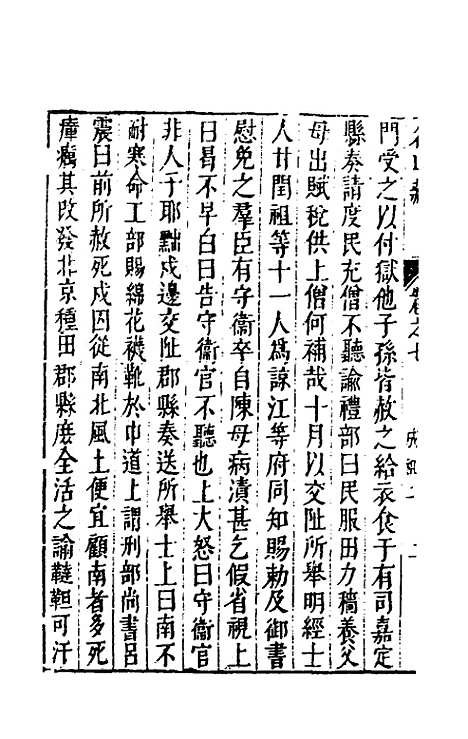 卷之七
門受之以付獄他子孫皆赦之給衣食于有司嘉定
縣奏請度民充僧不聽諭禮部曰民服田力穡養父
母出賦稅供上僧何補哉十月以交阯所舉明經士
人甘閏祖等十一人爲諒江等府同知賜勑及御書
慰免之羣臣有守衞卒自陳母病漬甚乞假省視上
曰曷不早白曰告守衞官不聽也上大怒曰守衞官
非人子耶黜戍邊交阯郡縣奏送所舉士上曰南不
耐寒命工部賜綿花襪靴於中道上謂刑部尚書呂
震曰前所赦死戍囚從南北風土便宜顧南者多死
瘴癘其改發北京種田郡縣庶全活之諭韃靼可汗